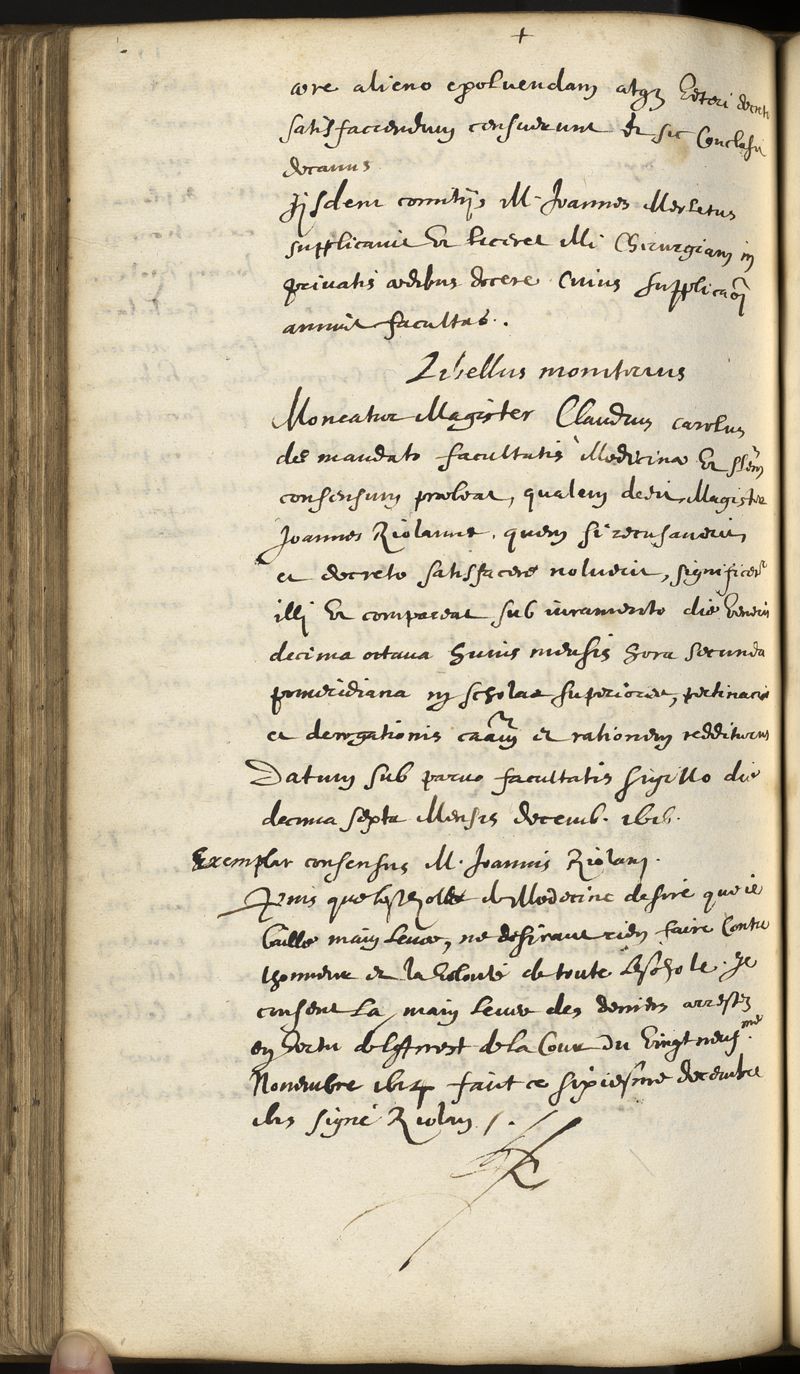 +
ære alieno exoluendam atq3 veteri decreto
satisfaciendum censuerunt et sic Conclusit
decanus
Iisdem comitijs M. Joannes Merletus
supplicauit vt liceret illi Chirurgiam in
priuatis ædibus docere Cuius supplicaōi
annuit facultas.
Libellus monitorius
Moneatur Magister Claudius Carolus
de mandato facultatis Medicinæ vt
consensum præbeat, qualem dedit Magister
Joannes Riolanus. quem si recusauerit,
et decreto satisfacere noluerit, significetr
illi vt compareat sub iuramento die veneris
decima octaua huius mensis hora secunda
pomeridiana in scholas superiores, pertinaciæ
et derogationis caām et rationem redditurus
Datum sub paruo facultatis sigillo die
decima sexta Mensis decemb. 1616.
Exemplar consensus M. Joannis Riolani.
Puis que de Medecine desire que ie
baille main leuee, ne desirant rien faire Contre
lhonneur et la volonté de toute leschole. Je
consent La main leuee des deniers arrestez
en vertu de lArrest de la Cour du vingt neufme
Nouembre 1614 faict ce sixiesme decembre
signé Riolan